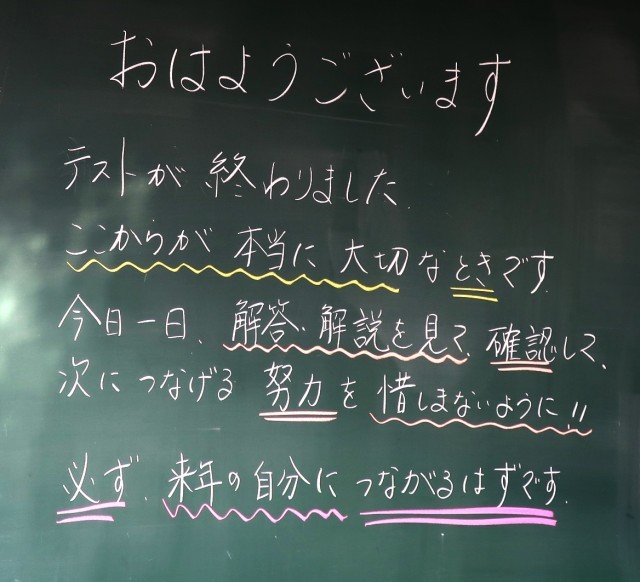 おはようございます
テストが終わりました.
ここからが本当に大切なときです.
今日一日、解答・解説を見て、確認して、
次につなげる努力を惜しまないように!!
必ず、来年の自分につながるはずです.